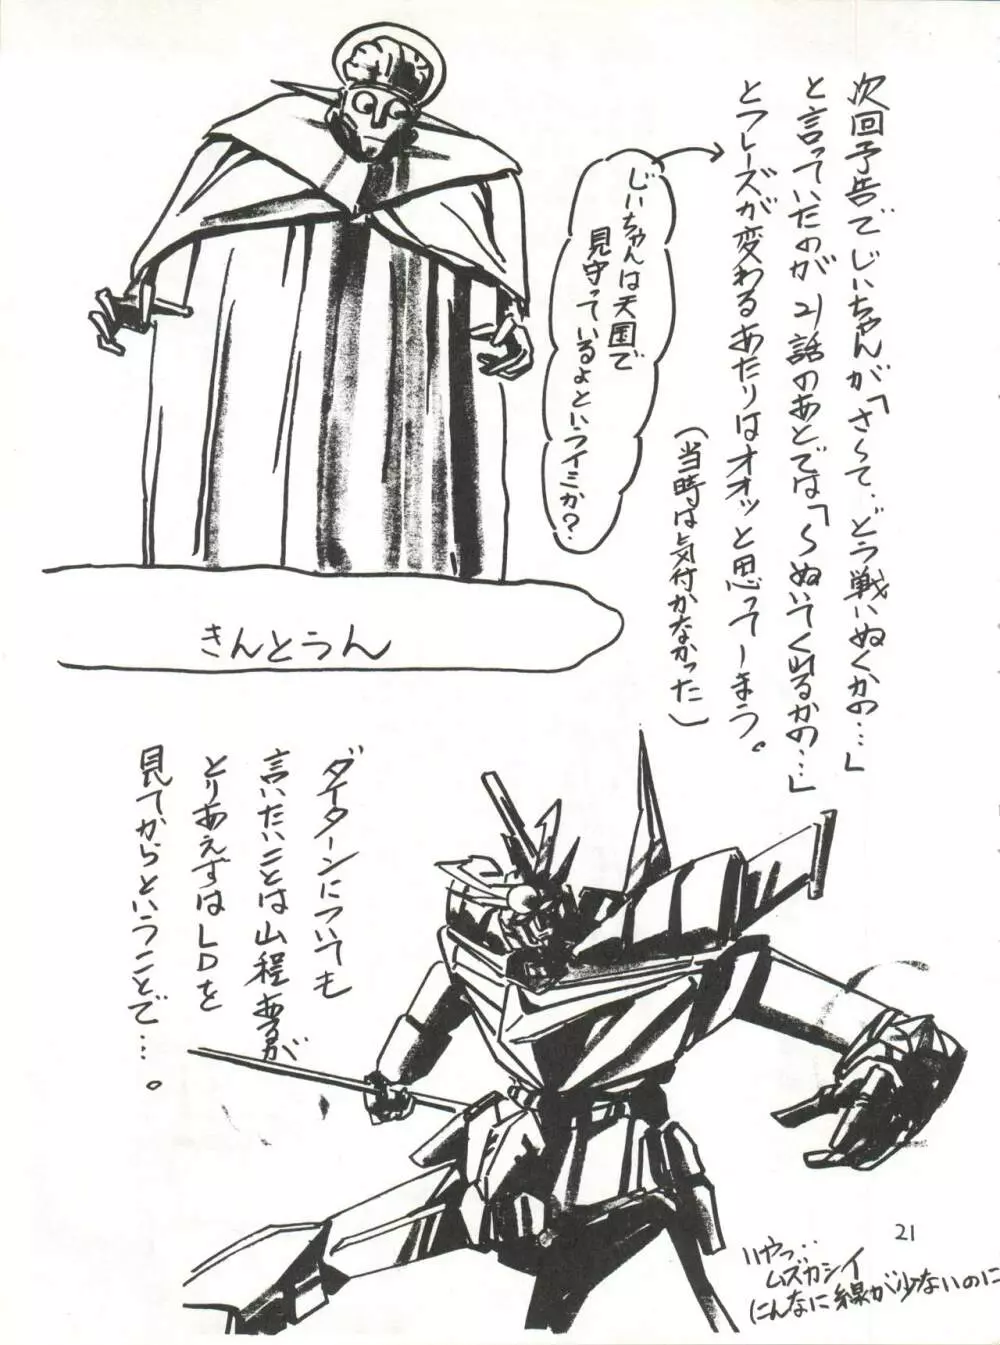 次回予告でじいちゃんが「さ〜て、どう戦いぬくかの…」
と言っていたのが21話のあとでは「〜ぬいてくれるかの…」
とフレーズが変わるあたりはオオッと思ってーまう。
(当時は気付かなかった)
じいちゃんは天国で
見守っているよというイミか?
きんとうん
ダイターンについても
言いたいことは山程あるが
とりあえずはLDを
見てからということで…。
いやっ…
ムズカシイ
こんなに線が少ないのに
21